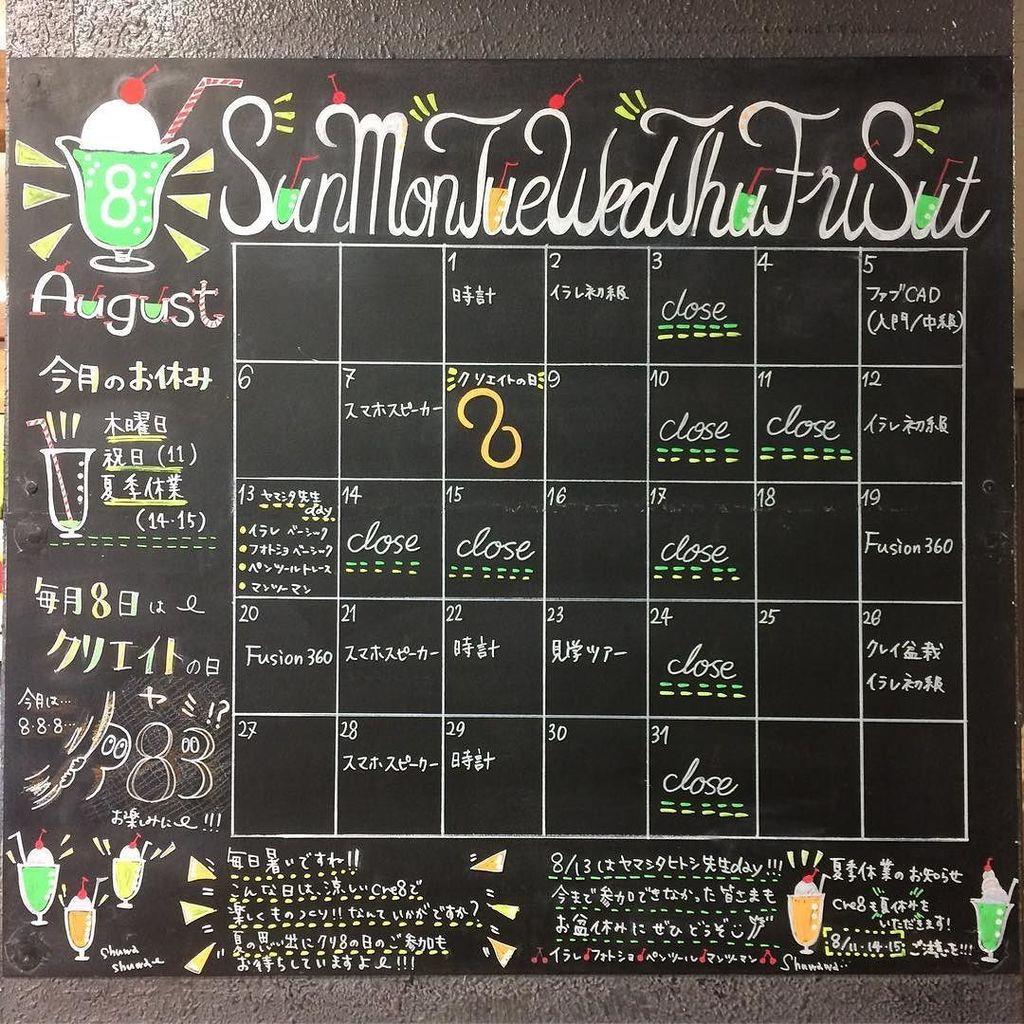 8
Sun Mon Tue Wed Thu Fri Sat
August
今月のお休み
木曜日
祝日(11)
夏季休業
(14・15)
毎月8日は
クリエイトの日
今月は…
8・8・8…
ヤミ!?
83
お楽しみに!!!
1
時計
2
イラレ初級
3
close
4
5
ファブCAD
(入門/中級)
6
7
スマホスピーカー
クリエイトの日
8
9
10
close
11
close
12
イラレ初級
13 ヤマシタ先生
day
・イラレ ベーシック
・フォトショ ベーシック
・ペンツールトレース
・マンツーマン
14
close
15
close
16
17
close
18
19
Fusion360
20
Fusion360
21
スマホスピーカー
22
時計
23
見学ツアー
24
close
25
26
クレイ盆栽
イラレ初級
27
28
スマホスピーカー
29
時計
30
31
close
shuwa
shuwa
毎日暑いですね!!
こんな日は、涼しいcre8で
楽しくものつくり!!なんていかがですか?
夏の思い出にクリ8の日のご参加も
お待ちしていますよ!!!
8/13はヤマシタヒトシ先生day!!!
今まで参加できなかった皆さまも
お盆休みにぜひどうぞ
イラレ フォトショ ペンツール マンツーマン
Shuwawa..
夏季休業のお知らせ
cre8も夏休みを
いただきます!
8/11・14・15